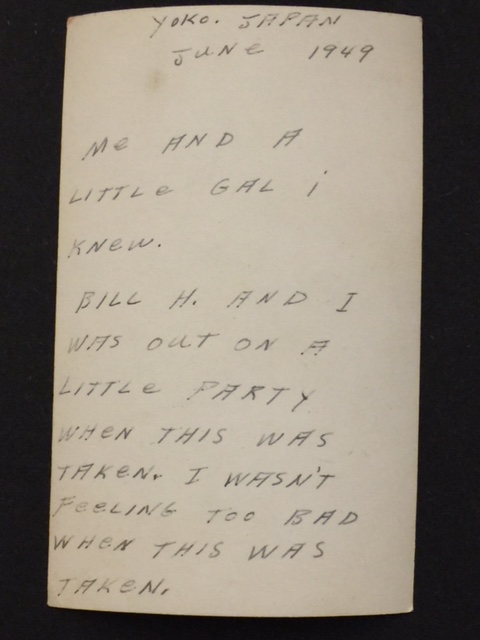 YOKO. JAPAN
JUNe 1949
Me AND A
LITTLe GAL i
KNEW.
BILL H. AND I
WAS OUT ON A
LITTLe PARTY
WHeN THIS WAS
TAKeN. I WASN'T
FeeLING TOO BAD
WHeN THIS WAS
TAKeN.